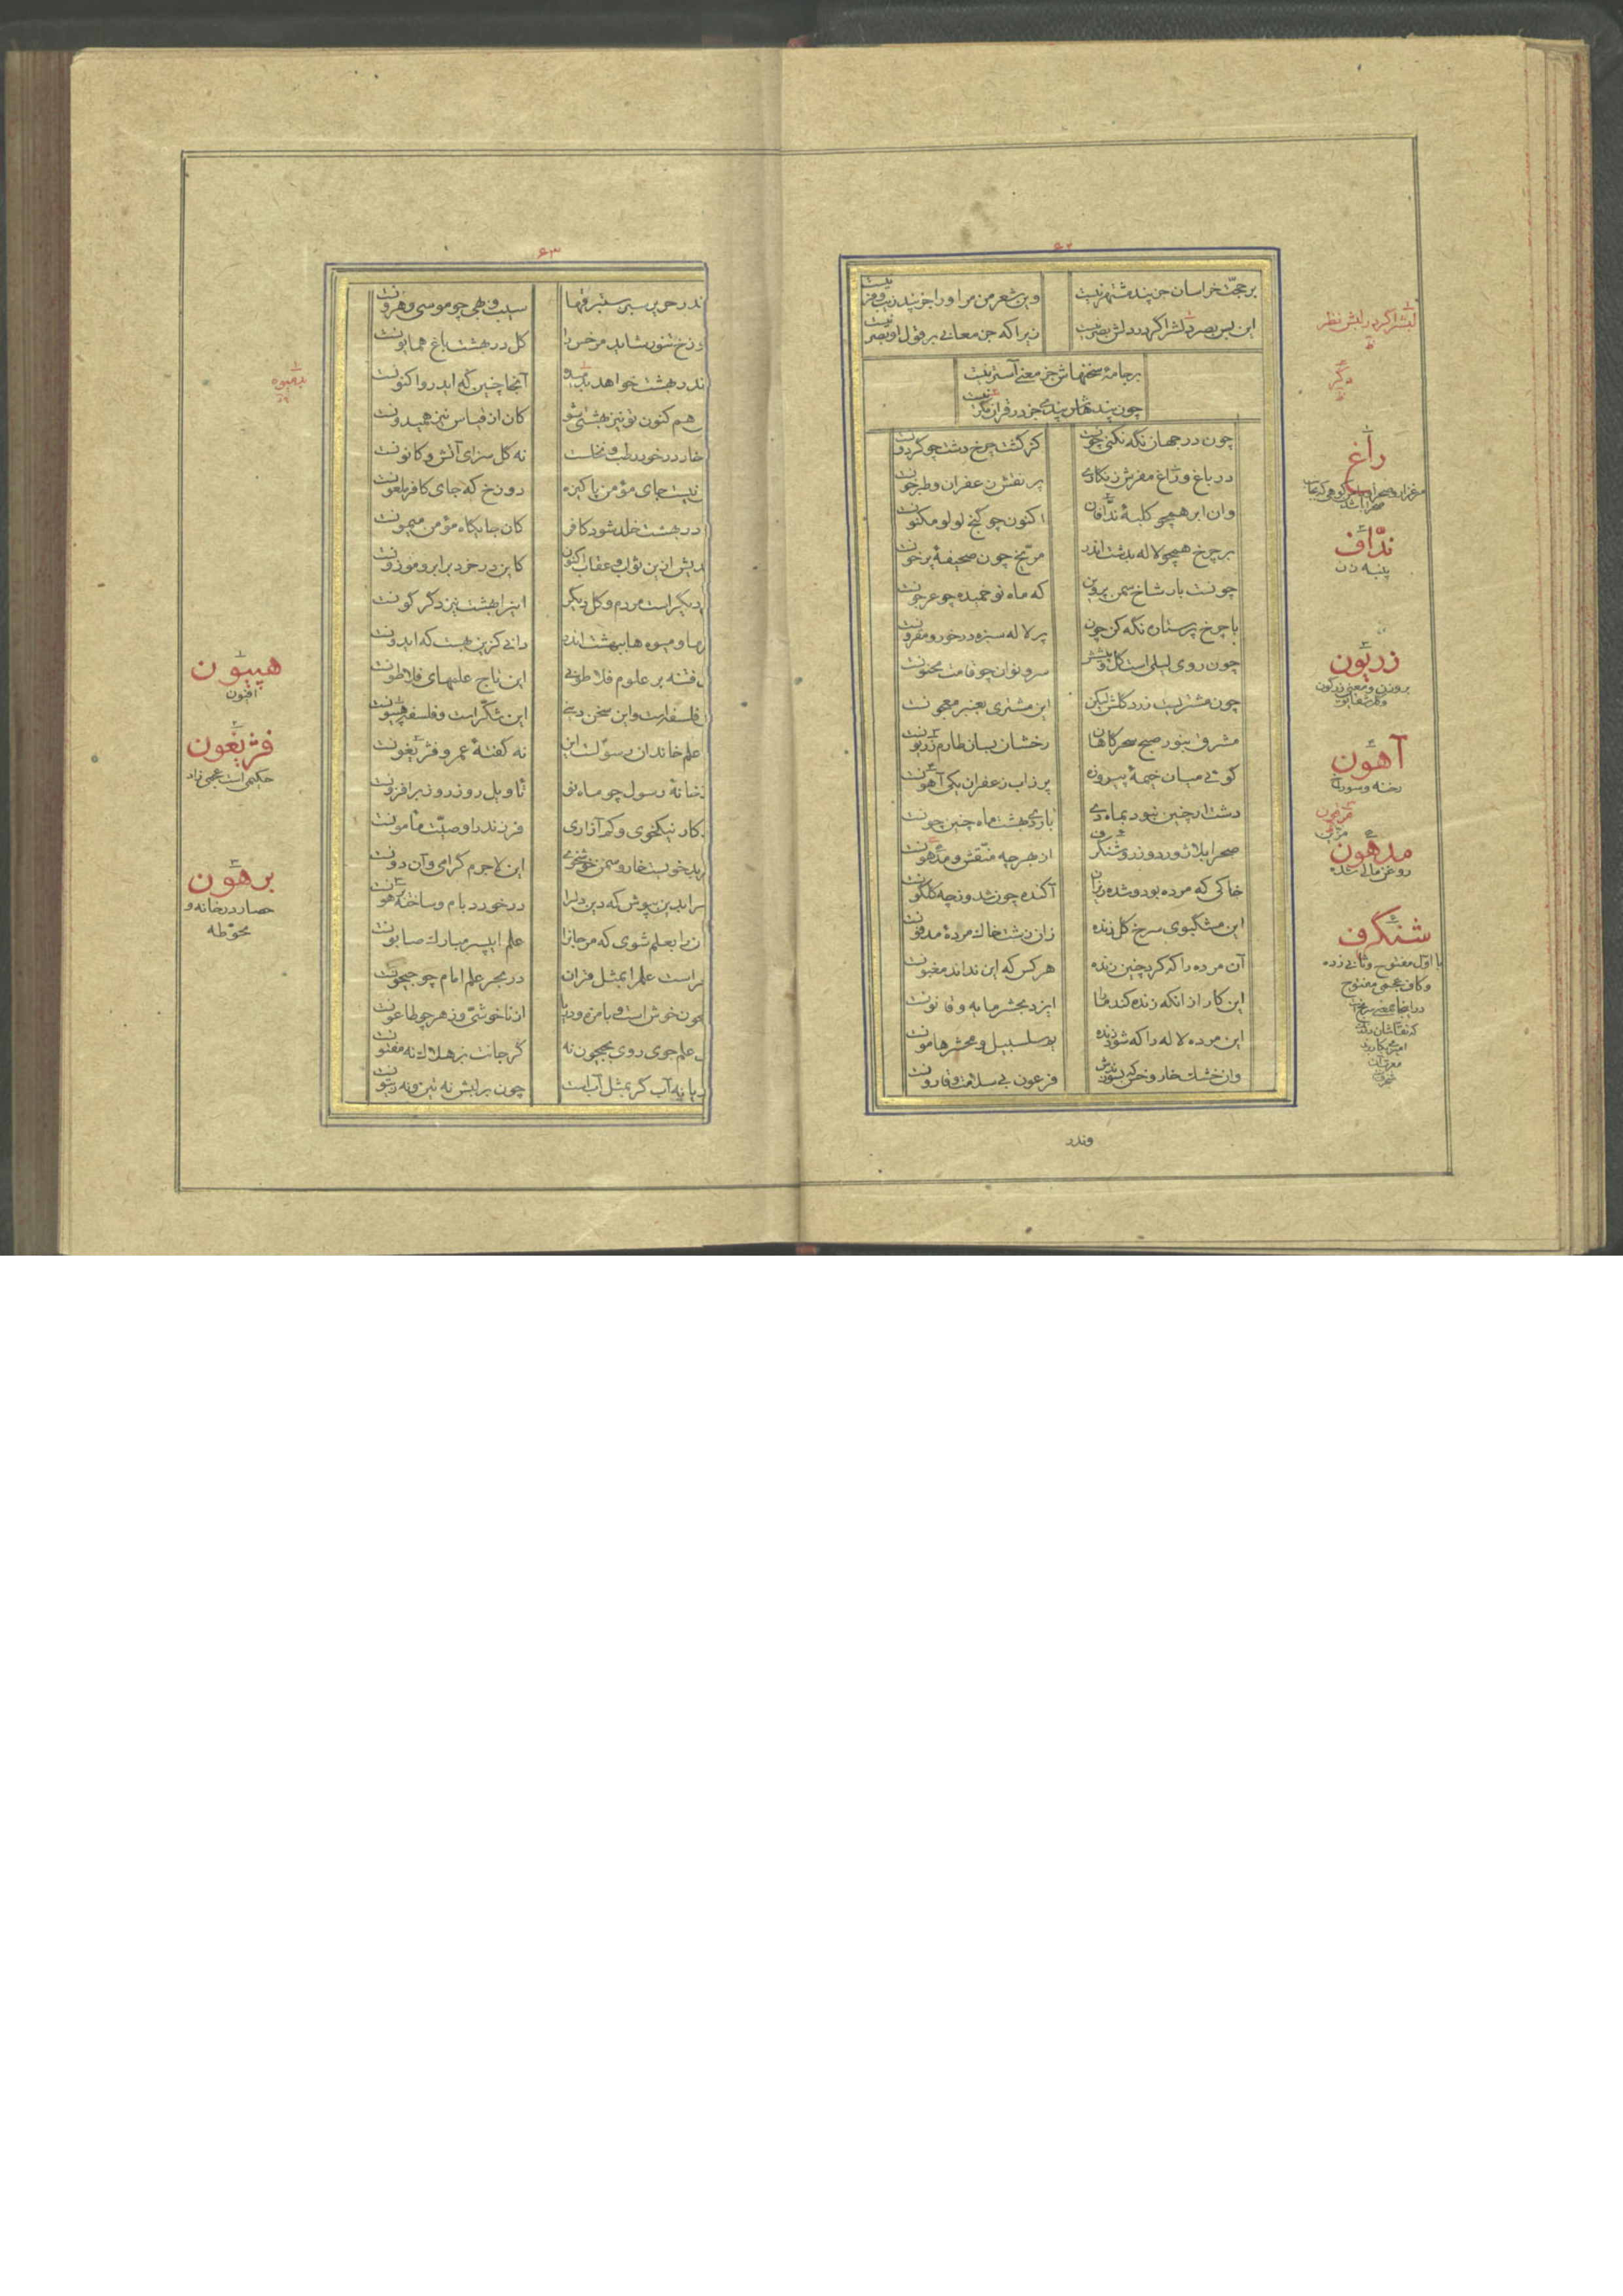 ۶۲
بر حجّت خراسان جز پند مشتهر نیست
وین شعر من مر او را جز پند زیب و فر نیست
این بس بصر دلش را گر در دلش بصر نیست
زیرا که جز معانی بر قول او نیست
بر جامهٔ سخنهاش جز معنی آستر نیست
چون پندهاش پندی جز در قران نیست
چون در جهان نگه نکنی چونست
کز گشت چرخ دشت چو گردونست
در باغ و راغ مفرش زنگاری
پر نقش زعفران و طبرخونست
وان ابر همچو کلبهٔ ندّافان
اکنون چو گنج لولو مکنونست
بر چرخ همچو لاله بدشت اندر
مرّیخ چون صحیفهٔ پر خونست
چونست باز شاخ سمن پروین
که ماه نو خمیده چو عرجونست
با چرخ پر ستاره نگه کن چون
پر لاله سبزه در خور و مقرونست
چون روی لیلی است گل و پیشش
سرو نوان چو قامت مجنونست
چون مشتریست زرد گلش لیکن
این مشتری بعنبر معجونست
مشرق بنور صبح سحرگاهان
رخشان بسان طارم زریونست
گوئی میان خیمهٔ پیروزه
پر زاب زعفران یکی آهونست
دشت ار چنین نبود بماه دی
باردی بهشت ماه چنین چونست
صحرا بلاژورد و زر و شنگرف
از بهر چه منّقش و مدهونست
خاکی که مرده بود و شده ریزان
آکنده چون شد و ز چه گلگونست
این مشگبوی سرخ گل زنده
زان زشت خاک مردهٔ مدفونست
آن مرده را که کرد چنین زنده
هر کس که این نداند مغبونست
این کار ازانکه زنده کند ما را
ایزد بحشر مایه و قانونست
این مرده لاله را که شود زنده
پر سلسبیل و محشر هامونست
وان خشک خار و خس که بسوزندش
فرعون بی سلامت و قارونست
وندر
راغ
ندّاف
پنبه زن
زریون
آهون
رخنه و سوراخ
مدهون
روغن مالی شده
شنگرف
با اوّل مفتوح و ثانی زده
وکاف عجمی مفتوح
۶۳
ندر حریر سبز ستبرقها
سیب و بهی چو موسی و هرونست
وزخ تنور شاید مر خس را
گل در بهشت باغ همایونست
ندر بهشت خواهد بد میوه
آنجا چنین که ایدر و اکنونست
هم کنون تو نیز بهشتی شو
کان از قیاس نیز همیدونست
خار در خور رطب و نخلست
نه گل سزای آتش و کانونست
نیست جای مؤمن پاکیزه
دوزخ که جای کافر ملعونست
در بهشت خلد شود کافر
کان جایگاه مؤمن میمونست
ندیش ازین ثواب و عقاب اکنون
کاین در خرد برابر و موزونست
دیگر است مردم و گل دیگر
این را بهشت نیز دگر گونست
ها و میوه ها ببهشت اندر
دانی کزین بهست که ایدونست
فتنه بر علوم فلاطونی
این تاج علمهای فلاطونست
فلسفه است و این سخن دینی
این شکّر است و فلسفه هپیونست
علم خاندان رسولست این
نه گفتهٔ عمرو و فژیغونست
خانهٔ رسول چو ماه نو
تأویل روز روز بر افزونست
کار نیکخوی و کم آزاری
فرزند را وصیّت مأمونست
بدخویست خار و سمن خوشخوی
این لاجرم گرامی و آن دونست
راید بن بپوش که دین دلرا
در خورد بام و ساخته برهونست
علم ای پسر مبارک صابونست
راست علم را بمثل قران
در بحر علم امام چو جیحونست
چون خوش است و بامزه و دریا
از ناخوشی و زهر چو طاعونست
علم جوی روی بجیحون نه
گر جانت بر هلاک نه مفتونست
دریا نه آب کز بمثل آبست
چون بر لبش نه تین و نه زیتونست
هپیون
افیون
فژیغون
حکیمی است عجمی نژاد
برهون
حصار در خانه و
محوّطه